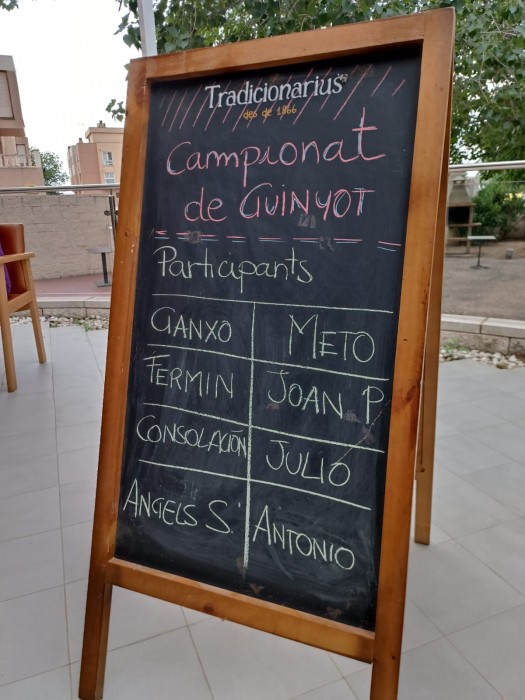 Tradicionarius
des de 1866
Campionat
de GUINYOT
Participants
GANXO METO
FERMIN JOAN P
CONSOLACIÓN JULIO
ANGELS S. ANTONIO